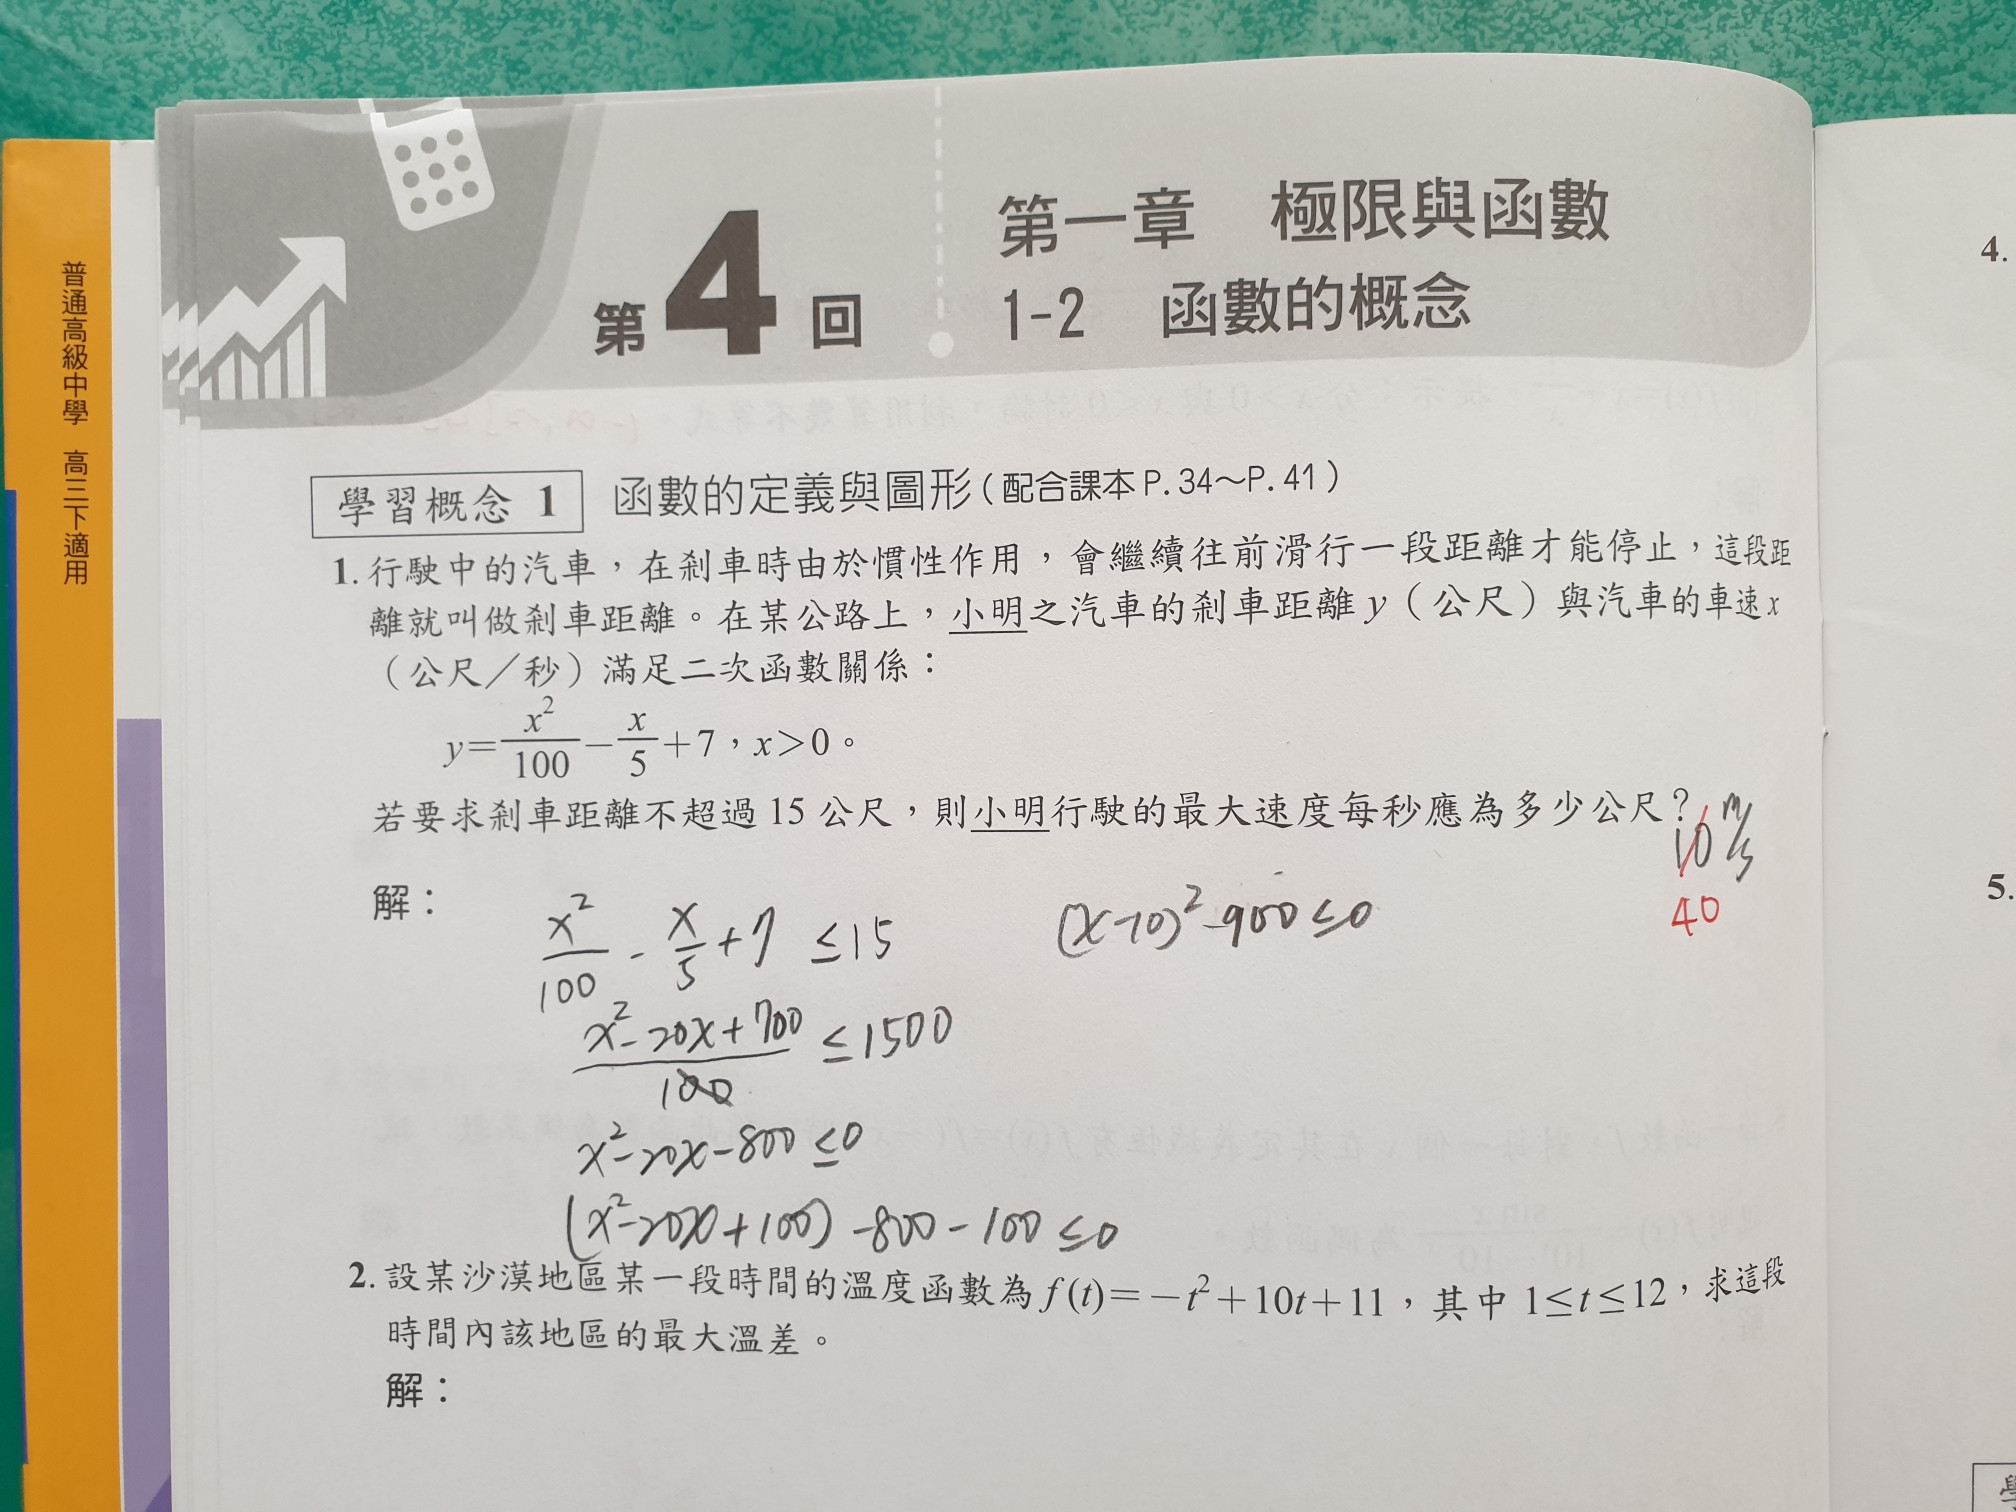 普通高級中學 高三下適用
第4回
第一章 極限與函數
1-2 函數的概念
學習概念 1 函數的定義與圖形(配合課本P.34~P.41)
1. 行駛中的汽車,在剎車時由於慣性作用,會繼續往前滑行一段距離才能停止,這段距
離就叫做剎車距離。在某公路上,小明之汽車的剎車距離y(公尺)與汽車的車速x
(公尺/秒)滿足二次函數關係:
y=x²/100−x/5+7,x>0。
若要求剎車距離不超過15公尺,則小明行駛的最大速度每秒應為多少公尺?
10 m/s
40
解:
x²/100 - x/5 + 7 ≤ 15
(x-10)² - 900 ≤ 0
x²-20x+700/100 ≤ 1500
x²-20x-800 ≤ 0
(x²-20x+100) -800-100 ≤ 0
2. 設某沙漠地區某一段時間的溫度函數為f(t)=−t²+10t+11,其中1≤t≤12,求這段
時間內該地區的最大溫差。
解:
4.
5.